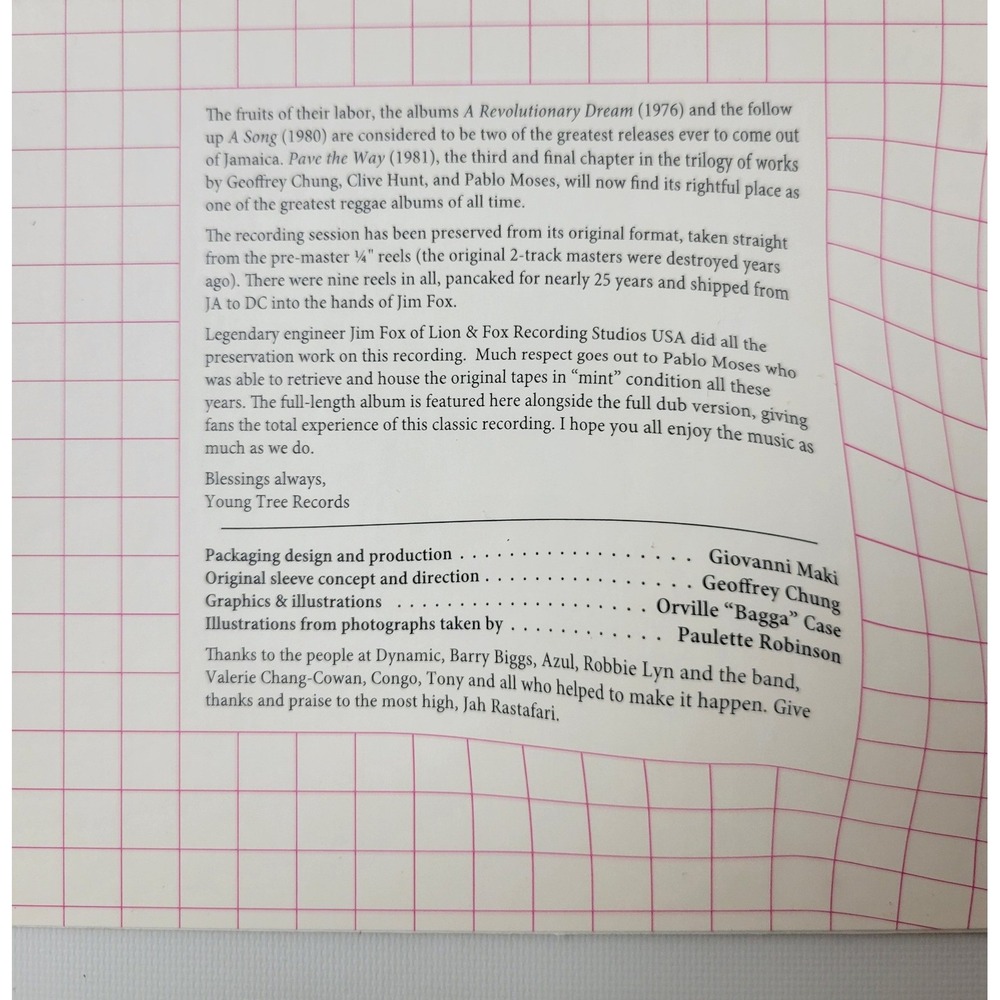 The fruits of their labor, the albums A Revolutionary Dream (1976) and the follow
up A Song (1980) are considered to be two of the greatest releases ever to come out
of Jamaica. Pave the Way (1981), the third and final chapter in the trilogy of works
by Geoffrey Chung, Clive Hunt, and Pablo Moses, will now find its rightful place as
one of the greatest reggae albums of all time.
The recording session has been preserved from its original format, taken straight
from the pre-master ¼" reels (the original 2-track masters were destroyed years
ago). There were nine reels in all, pancaked for nearly 25 years and shipped from
JA to DC into the hands of Jim Fox.
Legendary engineer Jim Fox of Lion & Fox Recording Studios USA did all the
preservation work on this recording. Much respect goes out to Pablo Moses who
was able to retrieve and house the original tapes in “mint” condition all these
years. The full-length album is featured here alongside the full dub version, giving
fans the total experience of this classic recording. I hope you all enjoy the music as
much as we do.
Blessings always,
Young Tree Records
Packaging design and production . . . . . . . . . . . . . . . . . . Giovanni Maki
Original sleeve concept and direction . . . . . . . . . . . . . . . . Geoffrey Chung
Graphics & illustrations . . . . . . . . . . . . . . . . . . . . Orville “Bagga” Case
Illustrations from photographs taken by . . . . . . . . . . . . Paulette Robinson
Thanks to the people at Dynamic, Barry Biggs, Azul, Robbie Lyn and the band,
Valerie Chang-Cowan, Congo, Tony and all who helped to make it happen. Give
thanks and praise to the most high, Jah Rastafari.